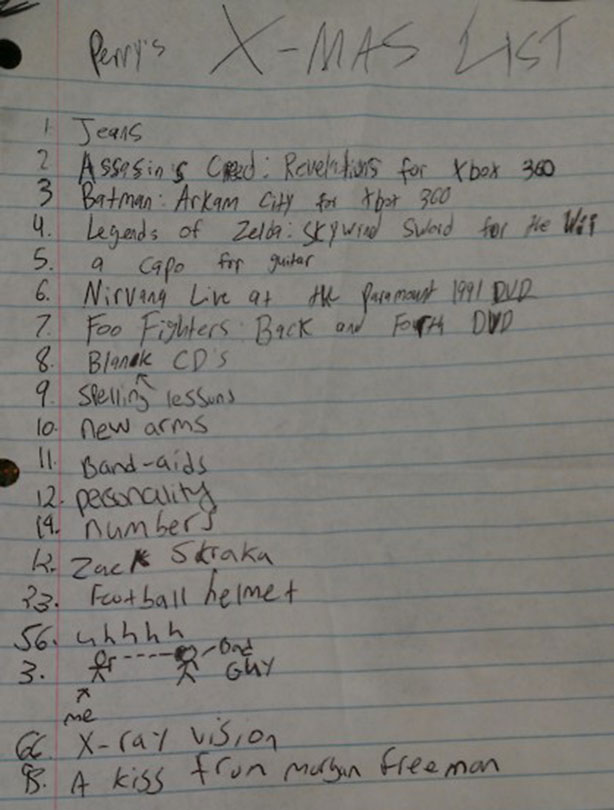 Perry's X-MAS LIST
1. Jeans
2 Assasin's Creed: Revelations for Xbox 360
3 Batman: Arkam City for Xbox 360
4. Legends of Zelda: Skywind Sword for the Wii
5. a capo for guitar
6. Nirvana Live at the Paramount 1991 DVD
7. Foo Fighters: Back and Fourth DVD
8. Blank CD's
9. Spelling lessons
10. new arms
11. Band-aids
12. personality
14. numbers
12. Zack Skraka
33. Football helmet
56. uhhhh
3. Bad
GUY
me
66. X-ray vision
93. A kiss from morgan freeman